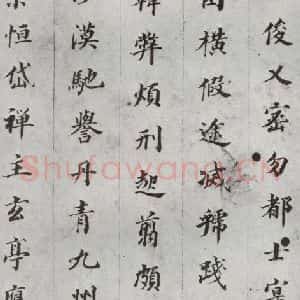 俊乂密勿都士寔
困橫假途滅虢踐
韓弊煩刑起翦頗
漠馳譽丹青九州
宗恒岱禪主云亭鴈
Shufawang.CN